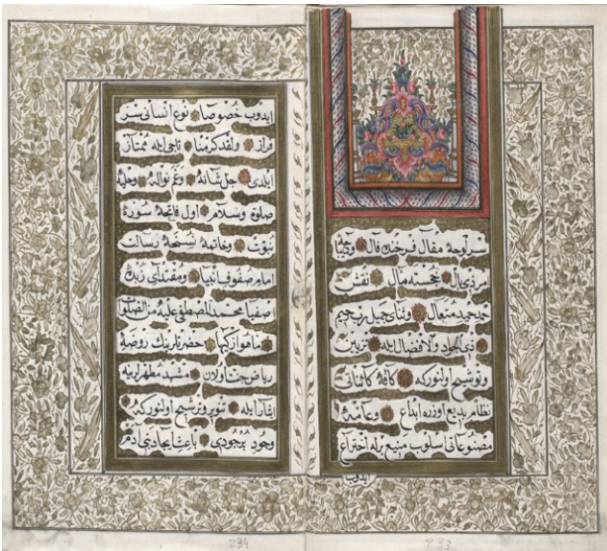 سرلوحهٔ مقال فرخنده فال ودیباجهٔ
امرذی بال خجسته مآل نقش
حمد حمید متعال وثنای جمیل رب رحیم
ذی الجود والافضال ایله تزیین
وتوشیح اولنورکه کافهٔ کائناتی
نظام بدیع اوزره ابداع وعامهٔ
مصنوعاتی اسلوب منیع ایله اختراع
ایدوب
233
ایدوب خصوصا نوع انسانی سر
فراز ولقد کرمنا تاجی ایله ممتاز
ایلدی جل شانه وعم نواله وحلیهٔ
صلوة وسلام اول فاتحهٔ سورهٔ
نبوت وخاتمهٔ نسخهٔ رسالت
امام صفوف انبیا ومقتدای
اصفیا محمد المصطفی علیه من الصلوات
ماهو ازکیها حضرتلرینک روضهٔ
ریاض جنات اولان مشهد مطهرلرینه
ایثار ایله تنویر وترشیح اولنورکه
وجود پرجودی باعث ایجاد بنی آدم
234